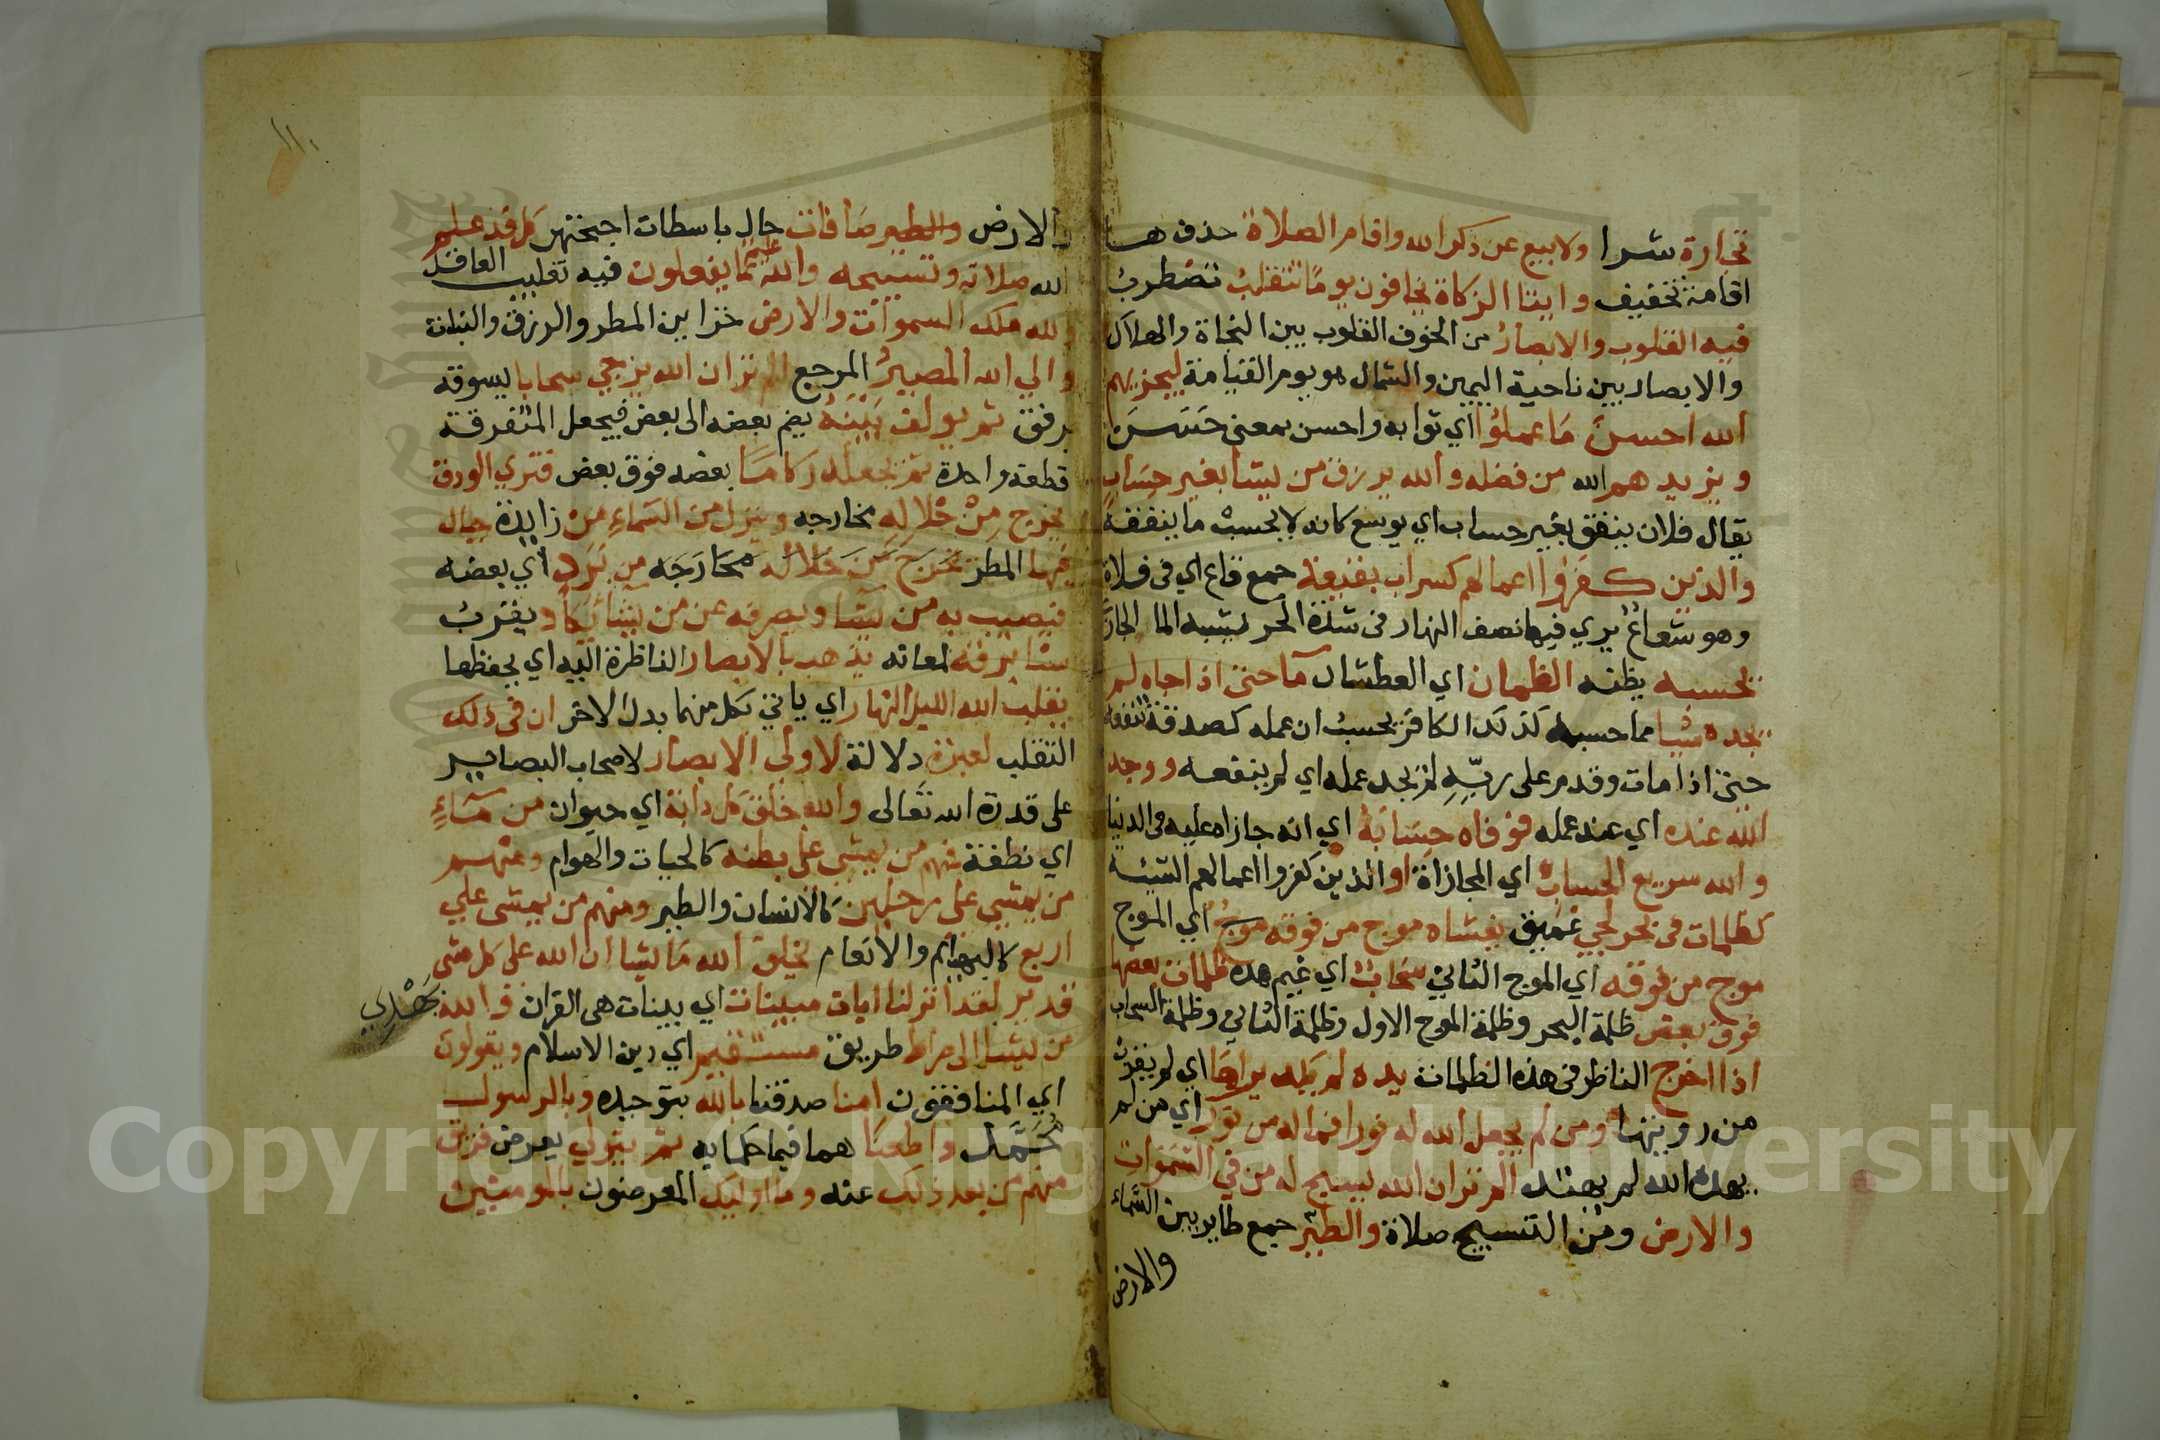 تجارة شرا ولا بيع عن ذكر الله واقام الصلاة حذف ها
اقامة تخفيف وايتا الزكاة يخافون يوما تتقلب تضطرب
فيه القلوب والابصار من الخوف القلوب بين النجاة والهلاك
والابصار بين ناحية اليمين والشمال هو يوم القيامة ليجزيهم
الله احسن ما عملوا اي ثوابه واحسن بمعنى حسن
ويزيدهم الله من فضله والله يرزق من يشا بغير حساب
يقال فلان ينفق بغير حساب اي يوسع كانه لا يحسب ما ينفقه
والذين كفروا اعمالهم كسراب بقيعة جمع قاع اي في فلاة
وهو شعاع يري فيها نصف النهار في شدة الحر يشبه الما الجار
يحسبه يظنه الظمان اي العطشان مآ حتى اذا جاه لم
يجده شيا مما حسبه كذلك الكافر يحسب ان عمله كصدقة تنفعه
حتى اذا مات وقدم على ربه لم يجد عمله اي لم ينفعه ووجد
الله عنده اي عند عمله فوفاه حسابه اي انه جازاه عليه في الدنيا
والله سريع الحساب اي المجازاة او الذين كفروا اعمالهم السيئه
كظلمات في بحر لجي عميق يغشاه موج من فوقه موج اي الموج
موج من فوقه اي الموج الثاني سحاب اي غيم هذه ظلمات بعضها
فوق بعض ظلمة البحر وظلمة الموج الاول وظلمة الثاني وظلمة السحاب
اذا اخرج الناظر في هذه الظلمات يده لم يكد يراها اي لم يقرب
من رويتها ومن لم يجعل الله له نورا فما له من نور اي من لم
يهده الله لم يهتد الم تر ان الله يسبح له من في السموات
والارض ومن التسبيح صلاة والطير جمع طاير بين السماء
والارض
والارض والطير صافات حال باسطات اجنحتهن كل قد علم
الله صلاته وتسبيحه والله عليم بما يفعلون فيه تغليب العاقل
ولله ملك السموات والارض خزاين المطر والرزق والنبات
والي الله المصير المرجع الم تر ان الله يزجي سحابا يسوقه
برفق ثم يولف بينه يضم بعضه الى بعض فيجعل المتفرقة
قطعة واحدة ثم يجعله ركاما بعضه فوق بعض فتري الودق
يخرج من خلاله مخارجه وينزل من السماء من زايدة جبال
فيها المطر يخرج من خلاله مخارجه من برد اي بعضه
فيصيب به من يشا ويصرفه عن من يشا يكاد يقرب
سنا برقه لمعانه يذهب بالابصار الناظرة اليه اي يخطفها
يقلب الله الليل النهار اي ياتي بكل منهما بدل الاخر ان في ذلك
التقلب لعبرة دلالة لاولي الابصار لاصحاب البصاير
على قدرة الله تعالى والله خلق كل دابة اي حيوان من ماء
اي نطفة فمنهم من يمشي على بطنه كالحيات والهوام ومنهم
من يمشي على رجلين كالانسان والطير ومنهم من يمشي علي
اربع كالبهائم والانعام يخلق الله ما يشا ان الله على كل شي
قدير لقد انزلنا ايات مبينات اي بينات هي القران والله يهدي
من يشا الى صراط طريق مستقيم اي دين الاسلام ويقولون
اي المنافقون امنا صدقنا بالله بتوحيده وبالرسول
محمد واطعنا هما فيما حكما به ثم يتولي يعرض فريق
منهم من بعد ذلك عنه وما اوليك المعرضون بالمومنين
Copyright © King Saud University